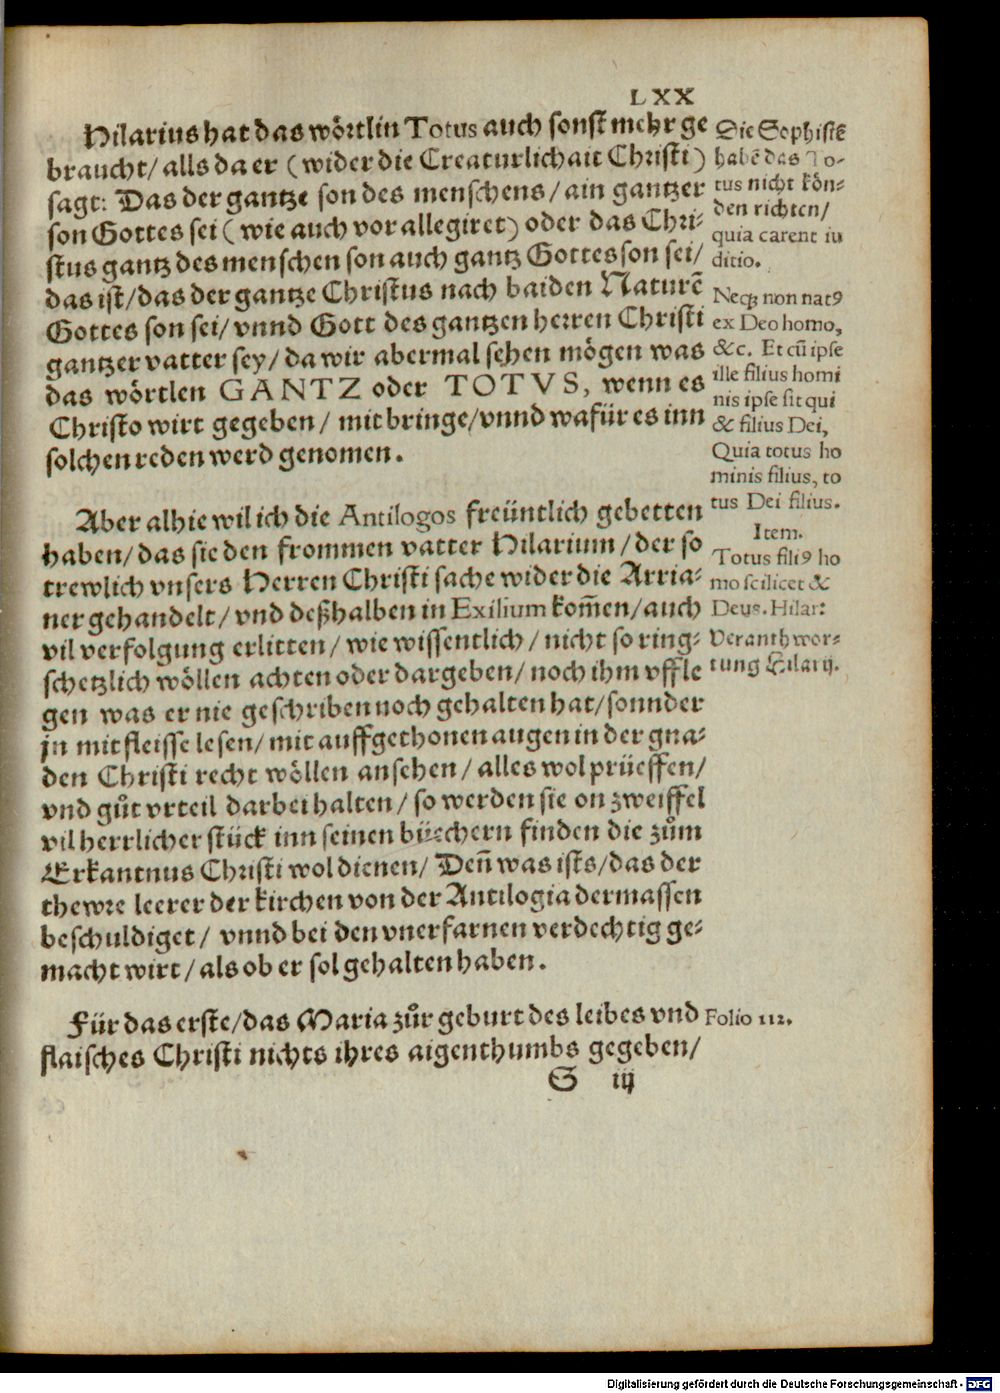 LXX
Hilarius hat das wörtlin Totus auch sonst mehr ge
braucht/ alls da er (wider die Creaturlichait Christi)
sagt: Das der gantze son des menschens/ ain gantzer
son Gottes sei (wie auch vor allegiret) oder das Chri-
stus gantz des menschen son auch gantz Gottes son sei/
das ist/ das der gantze Christus nach baiden Naturē
Gottes son sei/ vnnd Gott des gantzen herren Christi
gantzer vatter sey/ da wir abermal sehen mögen was
das wörtlen GANTZ oder TOTVS, wenn es
Christo wirt gegeben/ mit bringe/ vnnd wafür es inn
solchen reden werd genomen.
Die Sophistē
habē das To-
tus nicht kön-
den richten/
quia carent iu
ditio.
Necꝫ non natꝰ
ex Deo homo,
&c. Et cū ipse
ille filius homi
nis ipse sit qui
& filius Dei,
Quia totus ho
minis filius, to
tus Dei filius.
Item.
Totus filiꝰ ho
mo scilicet &
Deus. Hilar:
Aber alhie wil ich die Antilogos freüntlich gebetten
haben/ das sie den frommen vatter Hilarium/ der so
trewlich vnsers Herren Christi sache wider die Arria-
ner gehandelt/ vnd deßhalben in Exilium kom̄en/ auch
vil verfolgung erlitten/ wie wissentlich/ nicht so ring-
schetzlich wöllen achten oder dargeben/ noch ihm vffle
gen was er nie geschriben noch gehalten hat/ sonnder
jn mit fleisse lesen/ mit auffgethonen augen in der gna-
den Christi recht wöllen ansehen/ alles wol prüeffen/
vnd gůt vrteil darbei halten/ so werden sie on zweiffel
vil herrlicher stück inn seinen büechern finden die zům
Erkantnus Christi wol dienen/ Den̄ was ists/ das der
thewre leerer der kirchen von der Antilogia dermassen
beschuldiget/ vnnd bei den vnerfarnen verdechtig ge-
macht wirt/ als ob er sol gehalten haben.
Veranthwor-
tung Hilarij.
Für das erste/ das Maria zůr geburt des leibes vnd
flaisches Christi nichts ihres aigenthumbs gegeben/
Folio 112.
S iij
Digitalisierung gefördert durch die Deutsche Forschungsgemeinschaft - DFG